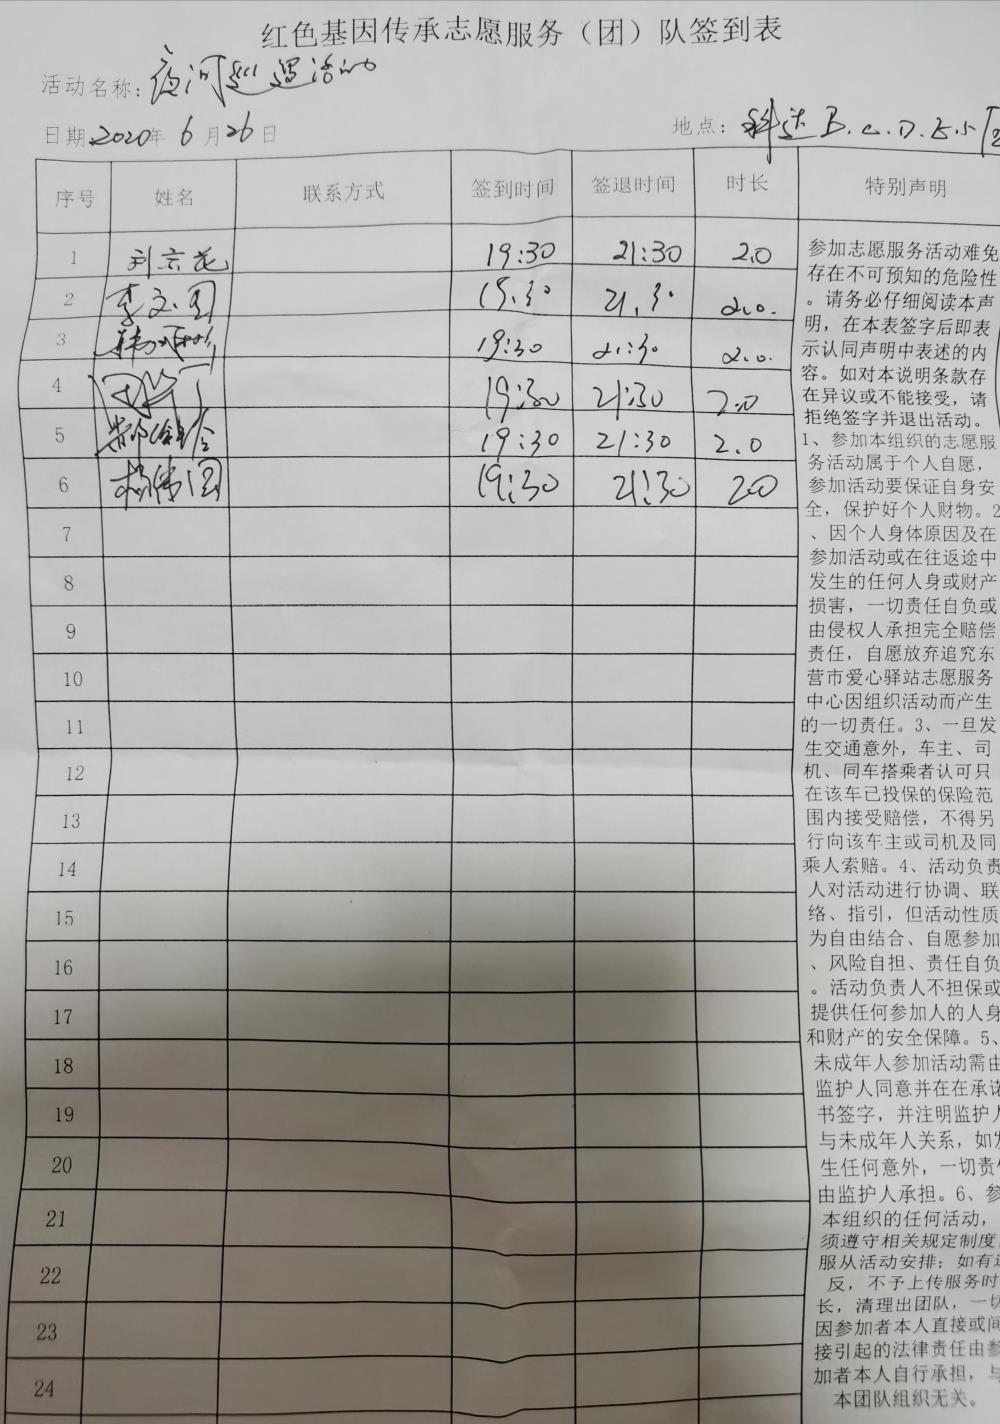 红色基因传承志愿服务（团）队签到表
活动名称：夜间巡逻活动
日期 2020年 6月26日
地点：科达 B.C.D.E.小区
序号 姓名 联系方式 签到时间 签退时间 时长 特别声明
1 刘京花 19:30 21:30 2.0
2 李文国 19.30 21.30 2.0.
3 19:30 21:30 2.0.
4 19:30 21:30 2.0
5 19:30 21:30 2.0
6 杨伟国 19:30 21:30 2.0
7
8
9
10
11
12
13
14
15
16
17
18
19
20
21
22
23
24
参加志愿服务活动难免
存在不可预知的危险性
。请务必仔细阅读本声
明，在本表签字后即表
示认同声明中表述的内
容。如对本说明条款存
在异议或不能接受，请
拒绝签字并退出活动。
1、参加本组织的志愿服
务活动属于个人自愿，
参加活动要保证自身安
全，保护好个人财物。2
、因个人身体原因及在
参加活动或在往返途中
发生的任何人身或财产
损害，一切责任自负或
由侵权人承担完全赔偿
责任，自愿放弃追究东
营市爱心驿站志愿服务
中心因组织活动而产生
的一切责任。3、一旦发
生交通意外，车主、司
机、同车搭乘者认可只
在该车已投保的保险范
围内接受赔偿，不得另
行向该车主或司机及同
乘人索赔。4、活动负责
人对活动进行协调、联
络、指引，但活动性质
为自由结合、自愿参加
、风险自担、责任自负
。活动负责人不担保或
提供任何参加人的人身
和财产的安全保障。5、
未成年人参加活动需由
监护人同意并在在承诺
书签字，并注明监护人
与未成年人关系，如发
生任何意外，一切责任
由监护人承担。6、参
本组织的任何活动，
须遵守相关规定制度
服从活动安排；如有违
反，不予上传服务时
长，清理出团队，一切
因参加者本人直接或间
接引起的法律责任由参
加者本人自行承担，与
本团队组织无关。